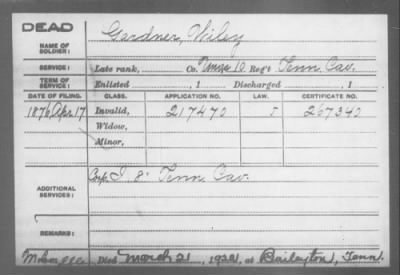 DEAD
NAME OF SOLDIER: Gardner, Wiley
SERVICE: Late rank, Co. Reg't Tenn Cav.
TERM OF SERVICE: Enlisted , 1 Discharged , 1
DATE OF FILING. CLASS. APPLICATION NO. LAW. CERTIFICATE NO.
1876 Apr. 17 Invalid, 217470 267340
Widow,
Minor,
ADDITIONAL SERVICES: I 8" Tenn Cav.
REMARKS:
Died March 21, at Baileyton, Tenn.